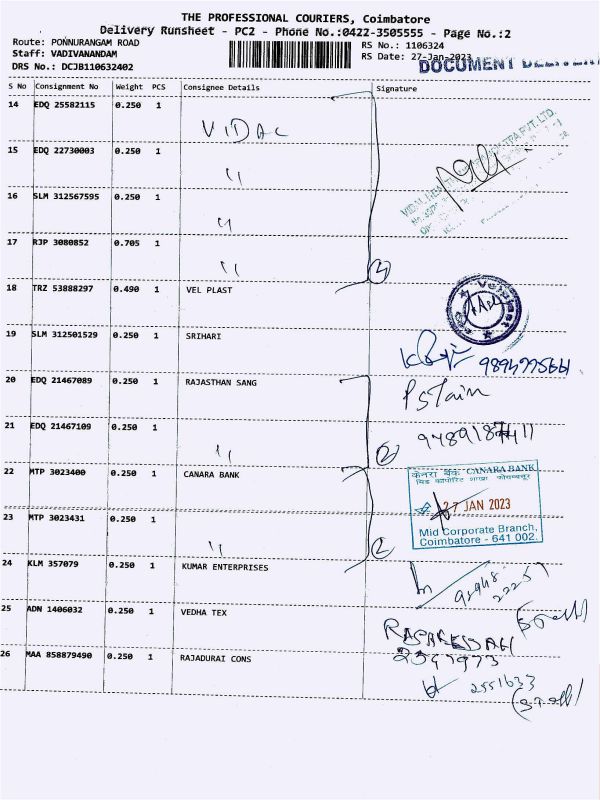 THE PROFESSIONAL COURIERS, Coimbatore
Delivery Runsheet - PC2 - Phone No.:0422-3505555 - Page No.:2
Route: PONNURANGAM ROAD
RS No.: 1106324
Staff: VADIVANANDAM
RS Date: 27-Jan-2023
DRS No.: DCJB110632402
DOCUMENT
S No Consignment No Weight PCS Consignee Details Signature
14 EDQ 25582115 0.250 1 VIDAL
15 EDQ 22730003 0.250 1 〃
16 SLM 312567595 0.250 1 〃
17 RJP 3080852 0.705 1 〃
4
18 TRZ 53888297 0.490 1 VEL PLAST
19 SLM 312501529 0.250 1 SRIHARI
9894775661
20 EDQ 21467089 0.250 1 RAJASTHAN SANG
PS Jain
21 EDQ 21467109 0.250 1 〃
2
22 MTP 3023400 0.250 1 CANARA BANK
केनरा बैंक CANARA BANK
27 JAN 2023
Mid Corporate Branch,
Coimbatore - 641 002.
23 MTP 3023431 0.250 1 〃
2
24 KLM 357079 0.250 1 KUMAR ENTERPRISES
25 ADN 1406032 0.250 1 VEDHA TEX
26 MAA 858879490 0.250 1 RAJADURAI CONS
2551633